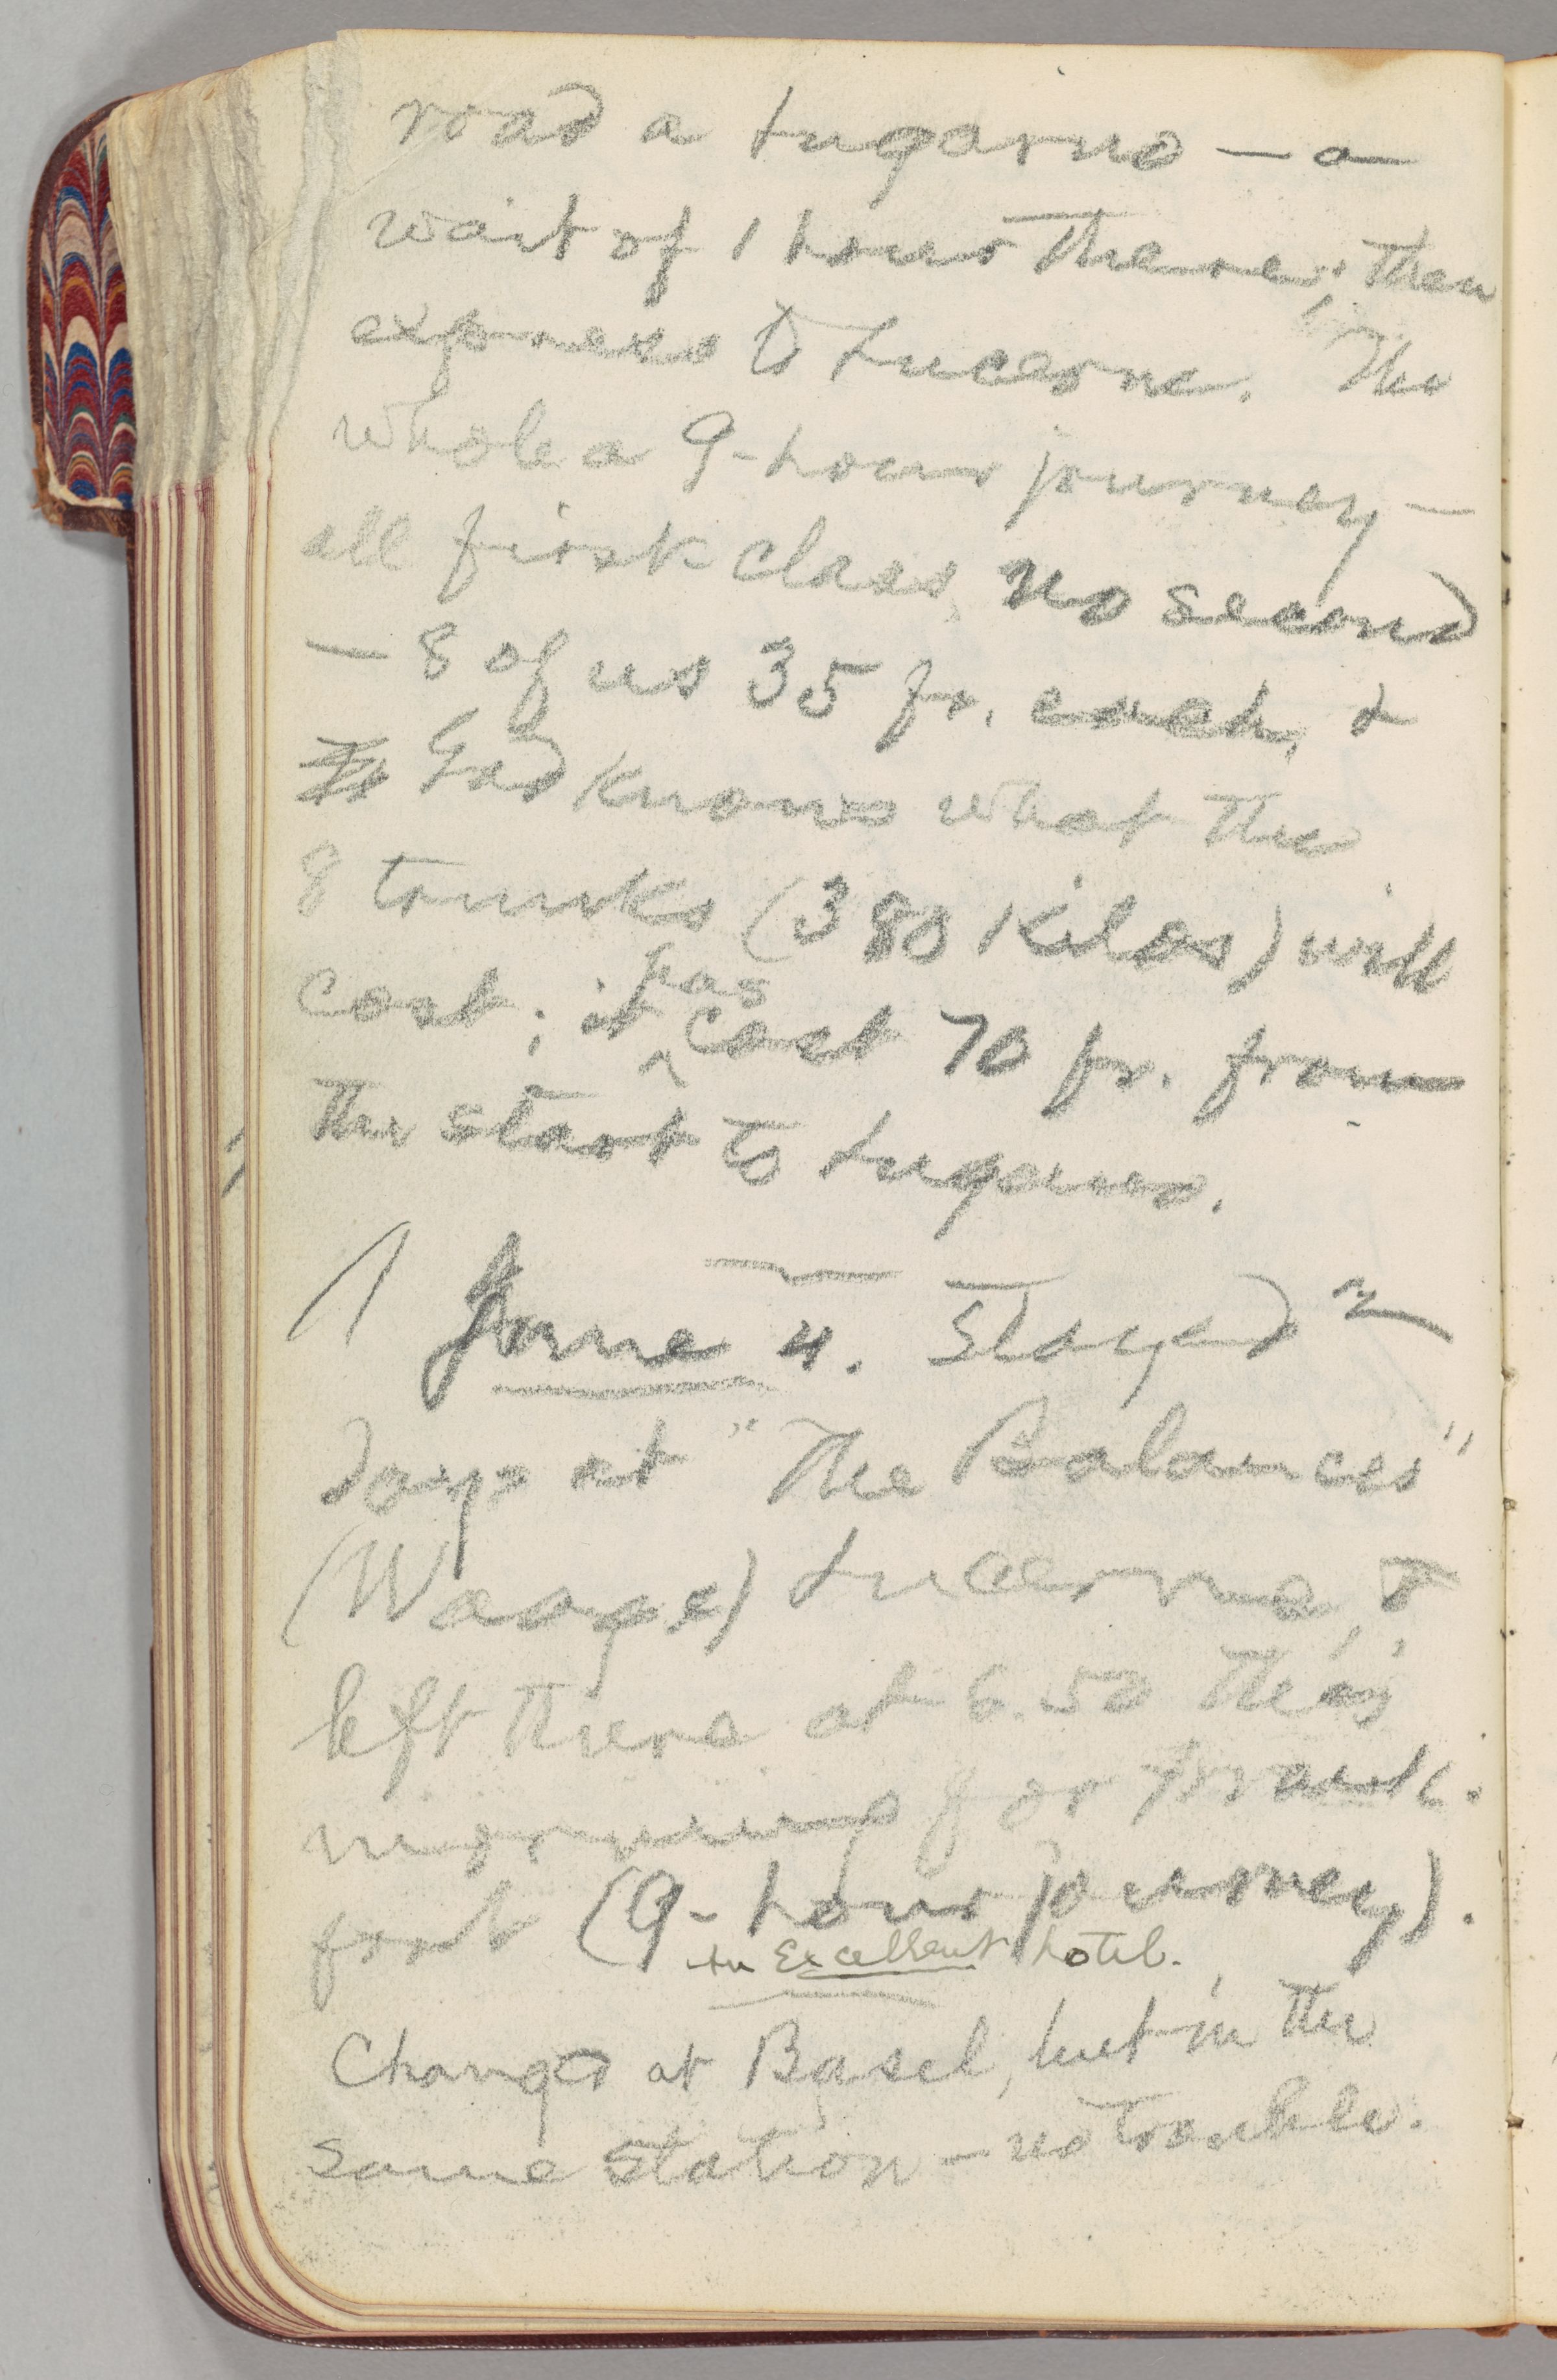 road a Lugarno — a
wait of 1 hour there; then
express to Lucerne. The
whole a 9-hour journey —
all first-class, no second
— 8 of us 35 fr. each, &
God knows what the
8 trunks (380 kilos) will
cost; it has cost 70 fr. from
the start to Lugano.
June 4. Stayed 2
days at "The Balances"
(Waage) Lucerne, &
left there at 6.50 this
morning for Frank-
fort (9-hour journey).
An Excellent hotel.
Changed at Basel, but in the
same station — no trouble.